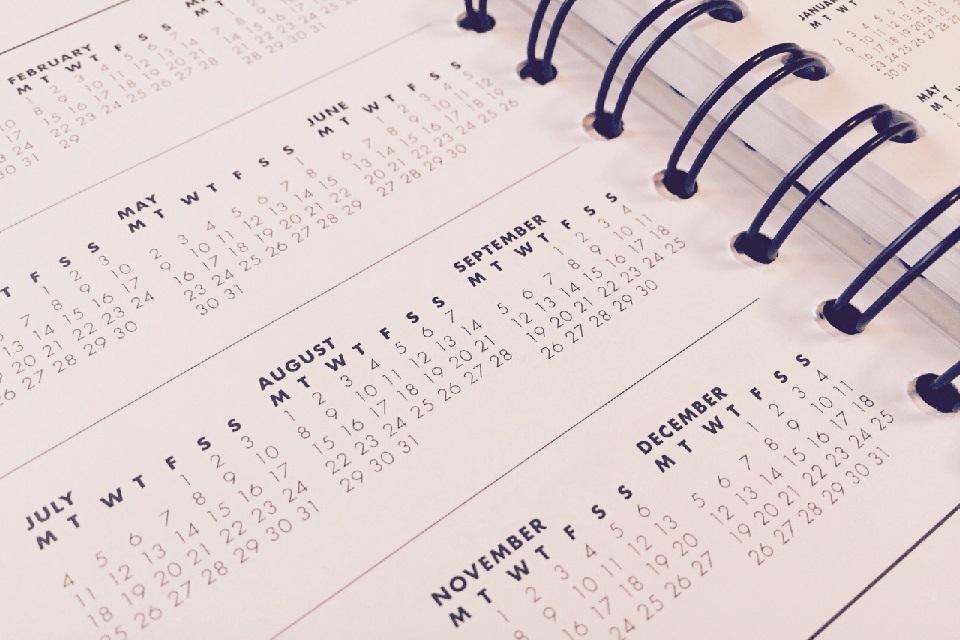 FEBRUARY
M T W T F S S
8 9 10 11 12 13 14
15 16 17 18 19 20 21
22 23 24 25 26 27 28
29
JUNE
M T W T F S S
1 2 3 4 5
6 7 8 9 10 11 12
13 14 15 16 17 18 19
20 21 22 23 24 25 26
27 28 29 30
MAY
M T W T F S S
1
2 3 4 5 6 7 8
9 10 11 12 13 14 15
16 17 18 19 20 21 22
23 24 25 26 27 28 29
30 31
T F S S
1 2 3
7 8 9 10
13 14 15 16 17
20 21 22 23 24
26 27 28 29 30
SEPTEMBER
M T W T F S S
1 2 3 4
5 6 7 8 9 10 11
12 13 14 15 16 17 18
19 20 21 22 23 24 25
26 27 28 29 30
AUGUST
M T W T F S S
1 2 3 4 5 6 7
8 9 10 11 12 13 14
15 16 17 18 19 20 21
22 23 24 25 26 27 28
29 30 31
JULY
M T W T F S S
1 2 3
4 5 6 7 8 9 10
11 12 13 14 15 16 17
18 19 20 21 22 23 24
25 26 27 28 29 30 31
DECEMBER
M T W T F S S
1 2 3 4
5 6 7 8 9 10 11
12 13 14 15 16 17 18
19 20 21 22 23 24 25
26 27 28 29 30 31
NOVEMBER
M T W T F S S
1 2 3 4 5 6
8 9 10 11 12 13
16 17 18 19 20
24 25 26 27
MAY